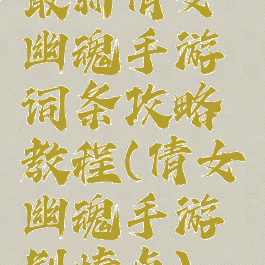 最新倩女
幽魂手游
词条攻略
教程(倩女
幽魂手游